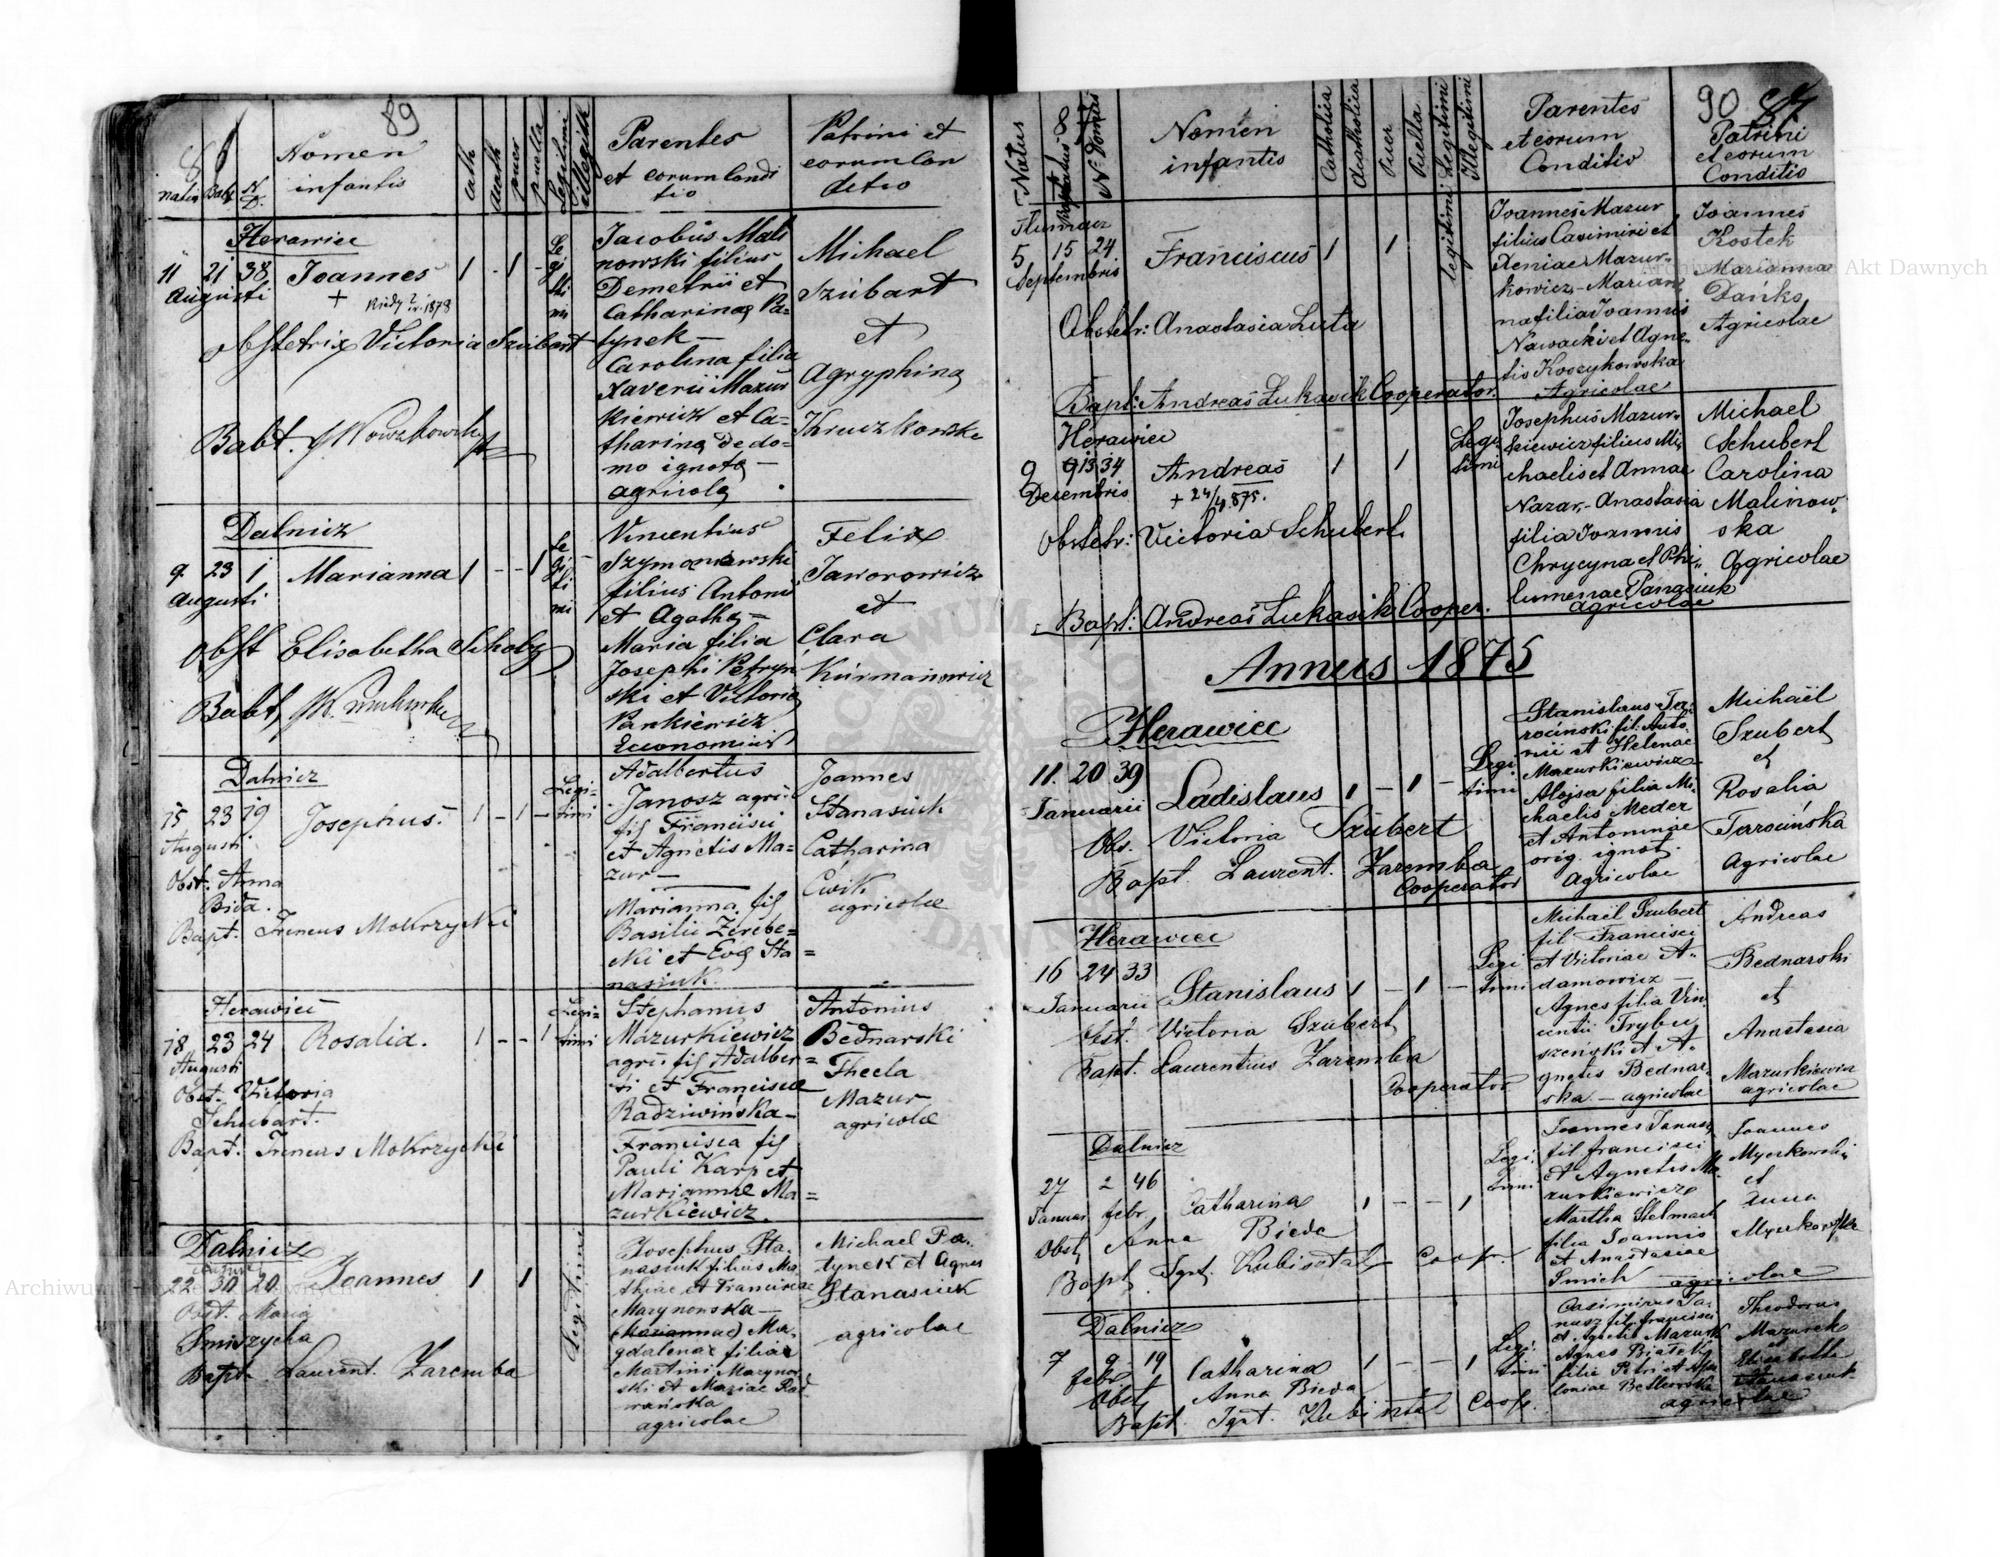 89
Nomen
infantis
Cath
puer
puella
Legitimi
Illegith
Parentes
et eorum Condi
tio
Patrini et
eorum Con
ditio
natus Babt N. D.
Herawiec
11 21 38 Joannes 1 - 1 -
Augusti
+
1878
Le
gi
thi
mi
Jacobus Mali
nowski filius
Demetrii et
Catharina Pa=
tynek —
Carolina filia
Xaverii Mazur
kiewicz et Ca=
tharina de do=
mo ignota —
agricola
Michael
Szubart
et
Agryphina
Kruczkowska
Obstetrix Victoria Szubart
Babt.
Dalnicz
9 23 1 Marianna 1 - - 1
Augusti
Le
gi
ti
mi
Vincentius
Szymanowski
filius Antonii
et Agatha —
Maria filia
Josephi Petryn
ski et Victoria
Pankiewicz
Economius
Felix
Jaworowicz
et
Clara
Kurmanowicz
Obst Elisabetha Scholz
Babt.
Dalnicz
15 23 19 Josephus. 1 - 1 -
Augusti
Legi=
timi
Adalbertus
Janosz agri:
fil Francisci
et Agnetis Ma=
zur —
Marianna fil
Basilii Zerebe=
cki et Eva Sta=
nasiuk.
Joannes
Stanasiuk
Catharina
Cwik
agricolae
Obst. Anna
Bida.
Bapt. Ireneus Mokrzycki
Herawiec
18 23 24 Rosalia. 1 - - 1
Augusti
Legi=
timi
Stephanus
Mazurkiewicz
agri: fil Adalber=
ti et Francisca
Radziwińska —
Francisca fil
Pauli Karp et
Mariannae Ma=
zurkiewicz.
Antonius
Bednarski
Thecla
Mazur
agricolae
Obst. Victoria
Schubart.
Bapt. Ireneus Mokrzycki
Dalnicz
22 30 20 Joannes 1 1
Legitimi
Josephus Sta.
nasiuk filius Ma
thiae et Franciscae
Marynowska —
(Mariannae) Ma.
gdalenae filiae
Martini Maryno
ski et Mariae Rad
wańska
agricolae
Michael Pa.
tynek et Agnes
Stanasiuk
agricolae
Obst. Maria
Smiszycha
Bapt. Laurent. Zaremba
90
Natus
Baptatus
No Domus
Nomen
infantis
Catholica
Acatholica
Puer
Puella
Legitimi
Illegitimi
Parentes
et eorum
Conditio
Patrini
et eorum
Conditio
Tlumacz
5 15 24 Franciscus 1 1
Septembris
legitimi
Joannes Mazur
filius Casimiri et
Xeniae Mazur=
kowicz - Marian
na filia Joannis
Nawacki et Agne=
tis Koszykowska
Agricolae
Joannes
Kostek
Marianna
Danko
Agricolae
Obstetr: Anastasia Luta
Bapt: Andreas Lukasik Cooperator.
Herawiec
9 9 13 34 Andreas 1 1
Decembris
Legi
timi
Josephus Mazur=
kiewicz filius Mi=
chaelis et Annae
Nazar, - Anastasia
filia Joannis
Chrycyna et Phi=
lumenae Panasiuk
agricolae
Michael
Schubert
Carolina
Malinow=
ska
Agricolae
Obstetr: Victoria Schubert
Bapt: Andreas Lukasik Cooper.
Annus 1875
Herawiec
11. 20 39 Ladislaus 1 - 1 -
Januarii
Legi
timi
Stanislaus Ta=
rociński fil. Anto
nii et Helenae
Mazurkiewicz
Aloisa filia Mi
chaelis Meder
et Antoninae
orig. ignot.
Agricolae
Michaël
Szubert
et
Rosalia
Tarocińska
Agricolae
Obs. Victoria Szubert
Bapt. Laurent. Zaremba
Cooperator
Herawiec
16 24 33 Stanislaus 1 - 1 -
Januarii
Legi
timi
Michaël Szubert
fil Francisci
et Victoriae A=
damowicz —
Agnes filia Vin
centii Trybu
szeński et A=
gnetis Bednar=
ska — agricolae
Andreas
Bednarski
et
Anastasia
Mazurkiewicz
agricolae
Obst. Victoria Szubert
Bapt. Laurentius Zaremba
Cooperator
Dalnicz
27 2 46 Catharina 1 - - 1
Januar febr.
Legi.
timi
Joannes Janusz
fil Francisci
et Agnetis Ma.
zurkiewicz
Martha Stelmach
filia Joannis
et Anastasiae
Smich agricolae
Joannes
Myczkowski
et
Anna
Myczkowska
Obst. Anna Bieda
Bapt. Ignt. Kubisztal Coop.
Dalnicz
7 9 19 Catharina 1 - - 1
febr
Legi.
timi
Casimirus Ja.
nusz fil. Francisci
et Agnetis Mazurk
Agnes Białek
filia Petri et Apo
loniae
Theodorus
Mazurek
et
Elisabetha
agricolae
Obst. Anna Bieda
Bapt. Ignt. Kubisztal Coop.